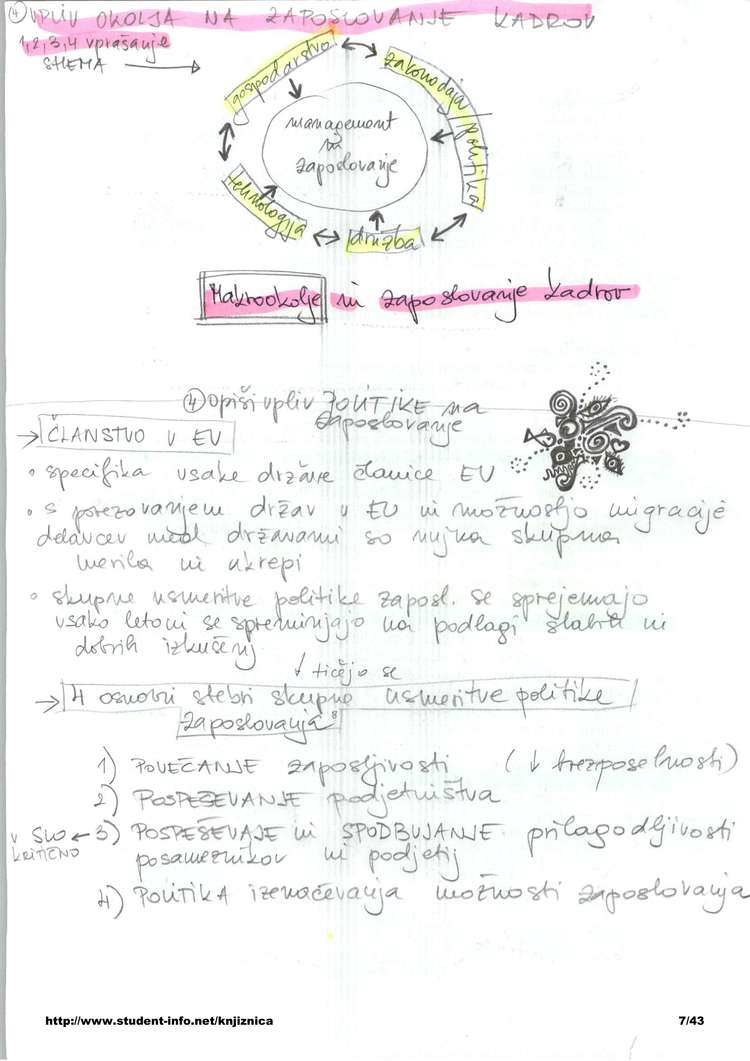 ④ VPLIV OKOLJA NA ZAPOSLOVANJE KADROV
1,2,3,4 vprašanje
SHEMA
gospodarstvo
zakonodaja/politika
management
in
zaposlovanje
tehnologija
družba
Makrookolje in zaposlovanje kadrov
④ Opiši vpliv POLITIKE na
zaposlovanje
→ ČLANSTVO V EU
• specifika vsake države članice EU
• s povezovanjem držav v EU in možnostjo migracije
delavcev med državami so nujna skupna
merila in ukrepi
• skupne usmeritve politike zaposl. se sprejemajo
vsako leto in se spreminjajo na podlagi slabih in
dobrih izkušenj
↓ tičejo se
→ 4 osnovni stebri skupne usmeritve politike
zaposlovanja:
1) POVEČANJE zaposljivosti (↓ brezposelnosti)
2) POSPEŠEVANJE podjetništva
V SLO ← 3) POSPEŠEVAJE in SPODBUJANJE prilagodljivosti
KRITIČNO posameznikov in podjetij
4) POLITIKA izenačevanja možnosti zaposlovanja
http://www.student-info.net/knjiznica 7/43